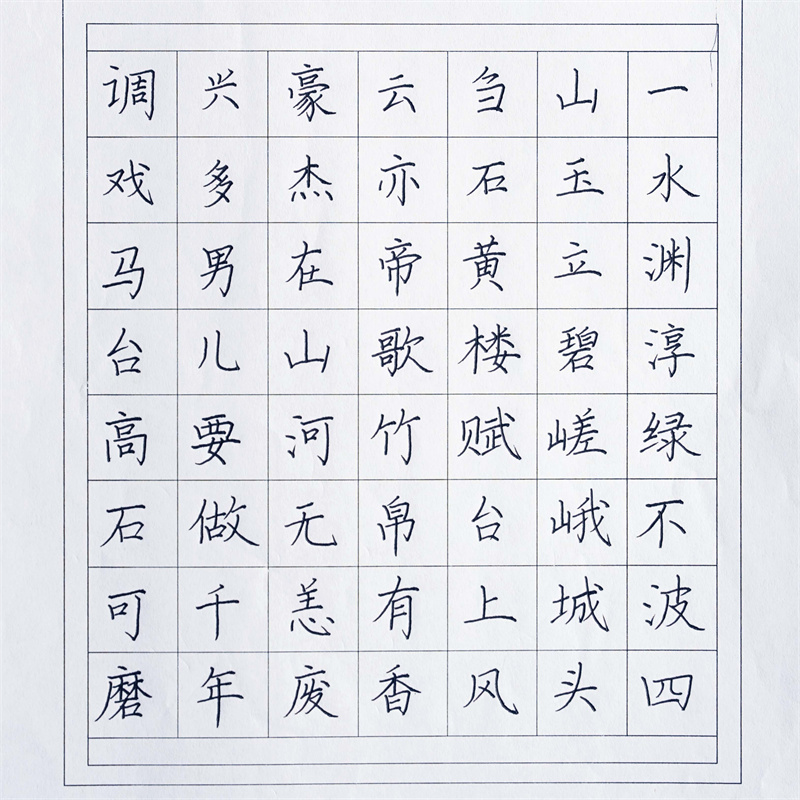 一水渊淳绿不波四
山玉立碧嵯峨城头
刍石黄楼赋台上风
云亦帝歌竹帛有香
豪杰在山河无恙废
兴多男儿要做千年
调戏马台高石可磨